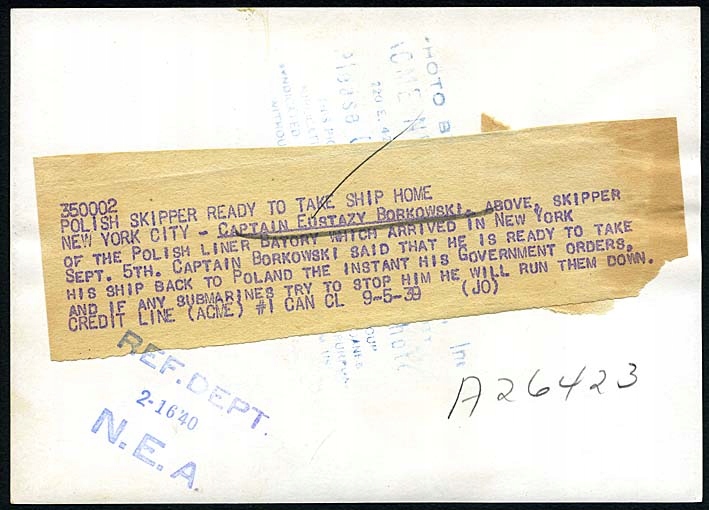 PHOTO B
ACME N
220 E. 42
Please C
SYNDICATED
WITHOU
350002
POLISH SKIPPER READY TO TAKE SHIP HOME
NEW YORK CITY - CAPTAIN EUSTAZY BORKOWSKI, ABOVE, SKIPPER
OF THE POLISH LINER BATORY WHICH ARRIVED IN NEW YORK
SEPT. 5TH. CAPTAIN BORKOWSKI SAID THAT HE IS READY TO TAKE
HIS SHIP BACK TO POLAND THE INSTANT HIS GOVERNMENT ORDERS,
AND IF ANY SUBMARINES TRY TO STOP HIM HE WILL RUN THEM DOWN.
CREDIT LINE (ACME) #1 CAN CL 9-5-39 (JO)
Inc
REF. DEPT.
2-1640
N.E.A.
A26423